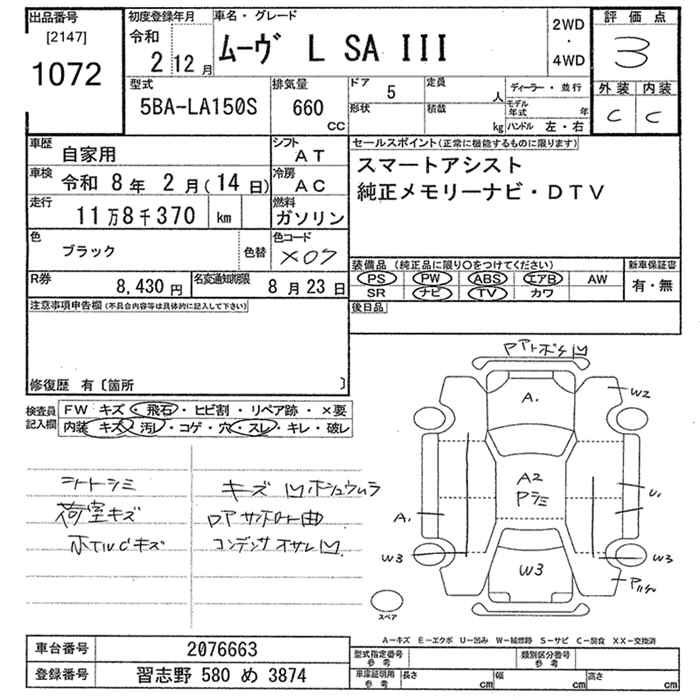 出品番号
[2147]
1072
初度登録年月
令和
2 12 月
車名・グレード
ムーヴ L SA III
2WD
・
4WD
評価点
3
外装 内装
C C
型式
5BA-LA150S
排気量
660
CC
ドア
5
定員
人
形状
積載
kg
ディーラー・並行
モデル年式
年
ハンドル 左・右
車歴
自家用
シフト
AT
車検
令和 8 年 2 月 ( 14 日 )
冷房
AC
走行
11 万 8 千 370 km
燃料
ガソリン
色
ブラック
色替
色コード
X07
R券
8,430 円
名変通知期限
8 月 23 日
セールスポイント(正常に機能するものに限ります)
スマートアシスト
純正メモリーナビ・DTV
装備品 (純正品に限り○をつけてください)
PS PW ABS エアB AW
SR ナビ TV カワ
新車保証書
有・無
後日品
注意事項申告欄 (不具合内容等は具体的に記入して下さい)
修復歴 有〔箇所 〕
検査員
記入欄
FW キズ・飛石・ヒビ割・リペア跡・×要
内装 キズ・汚レ・コゲ・穴・スレ・キレ・破レ
シートシミ
荷室キズ
ホイルCキズ
キズ凹ホシュウムラ
コンデンサオサレ凹
A.
W2
A2
Pシミ
U.
A.
W3
W3
W3
スペア
A-キズ E-エクボ U-凹み W-補修跡 S-サビ C-腐食 XX-交換済
車台番号
2076663
登録番号
習志野 580 め 3874
型式指定番号
参考
類別区分番号
参考
車庫証明用
参考
長さ
cm
幅
cm
高さ
cm